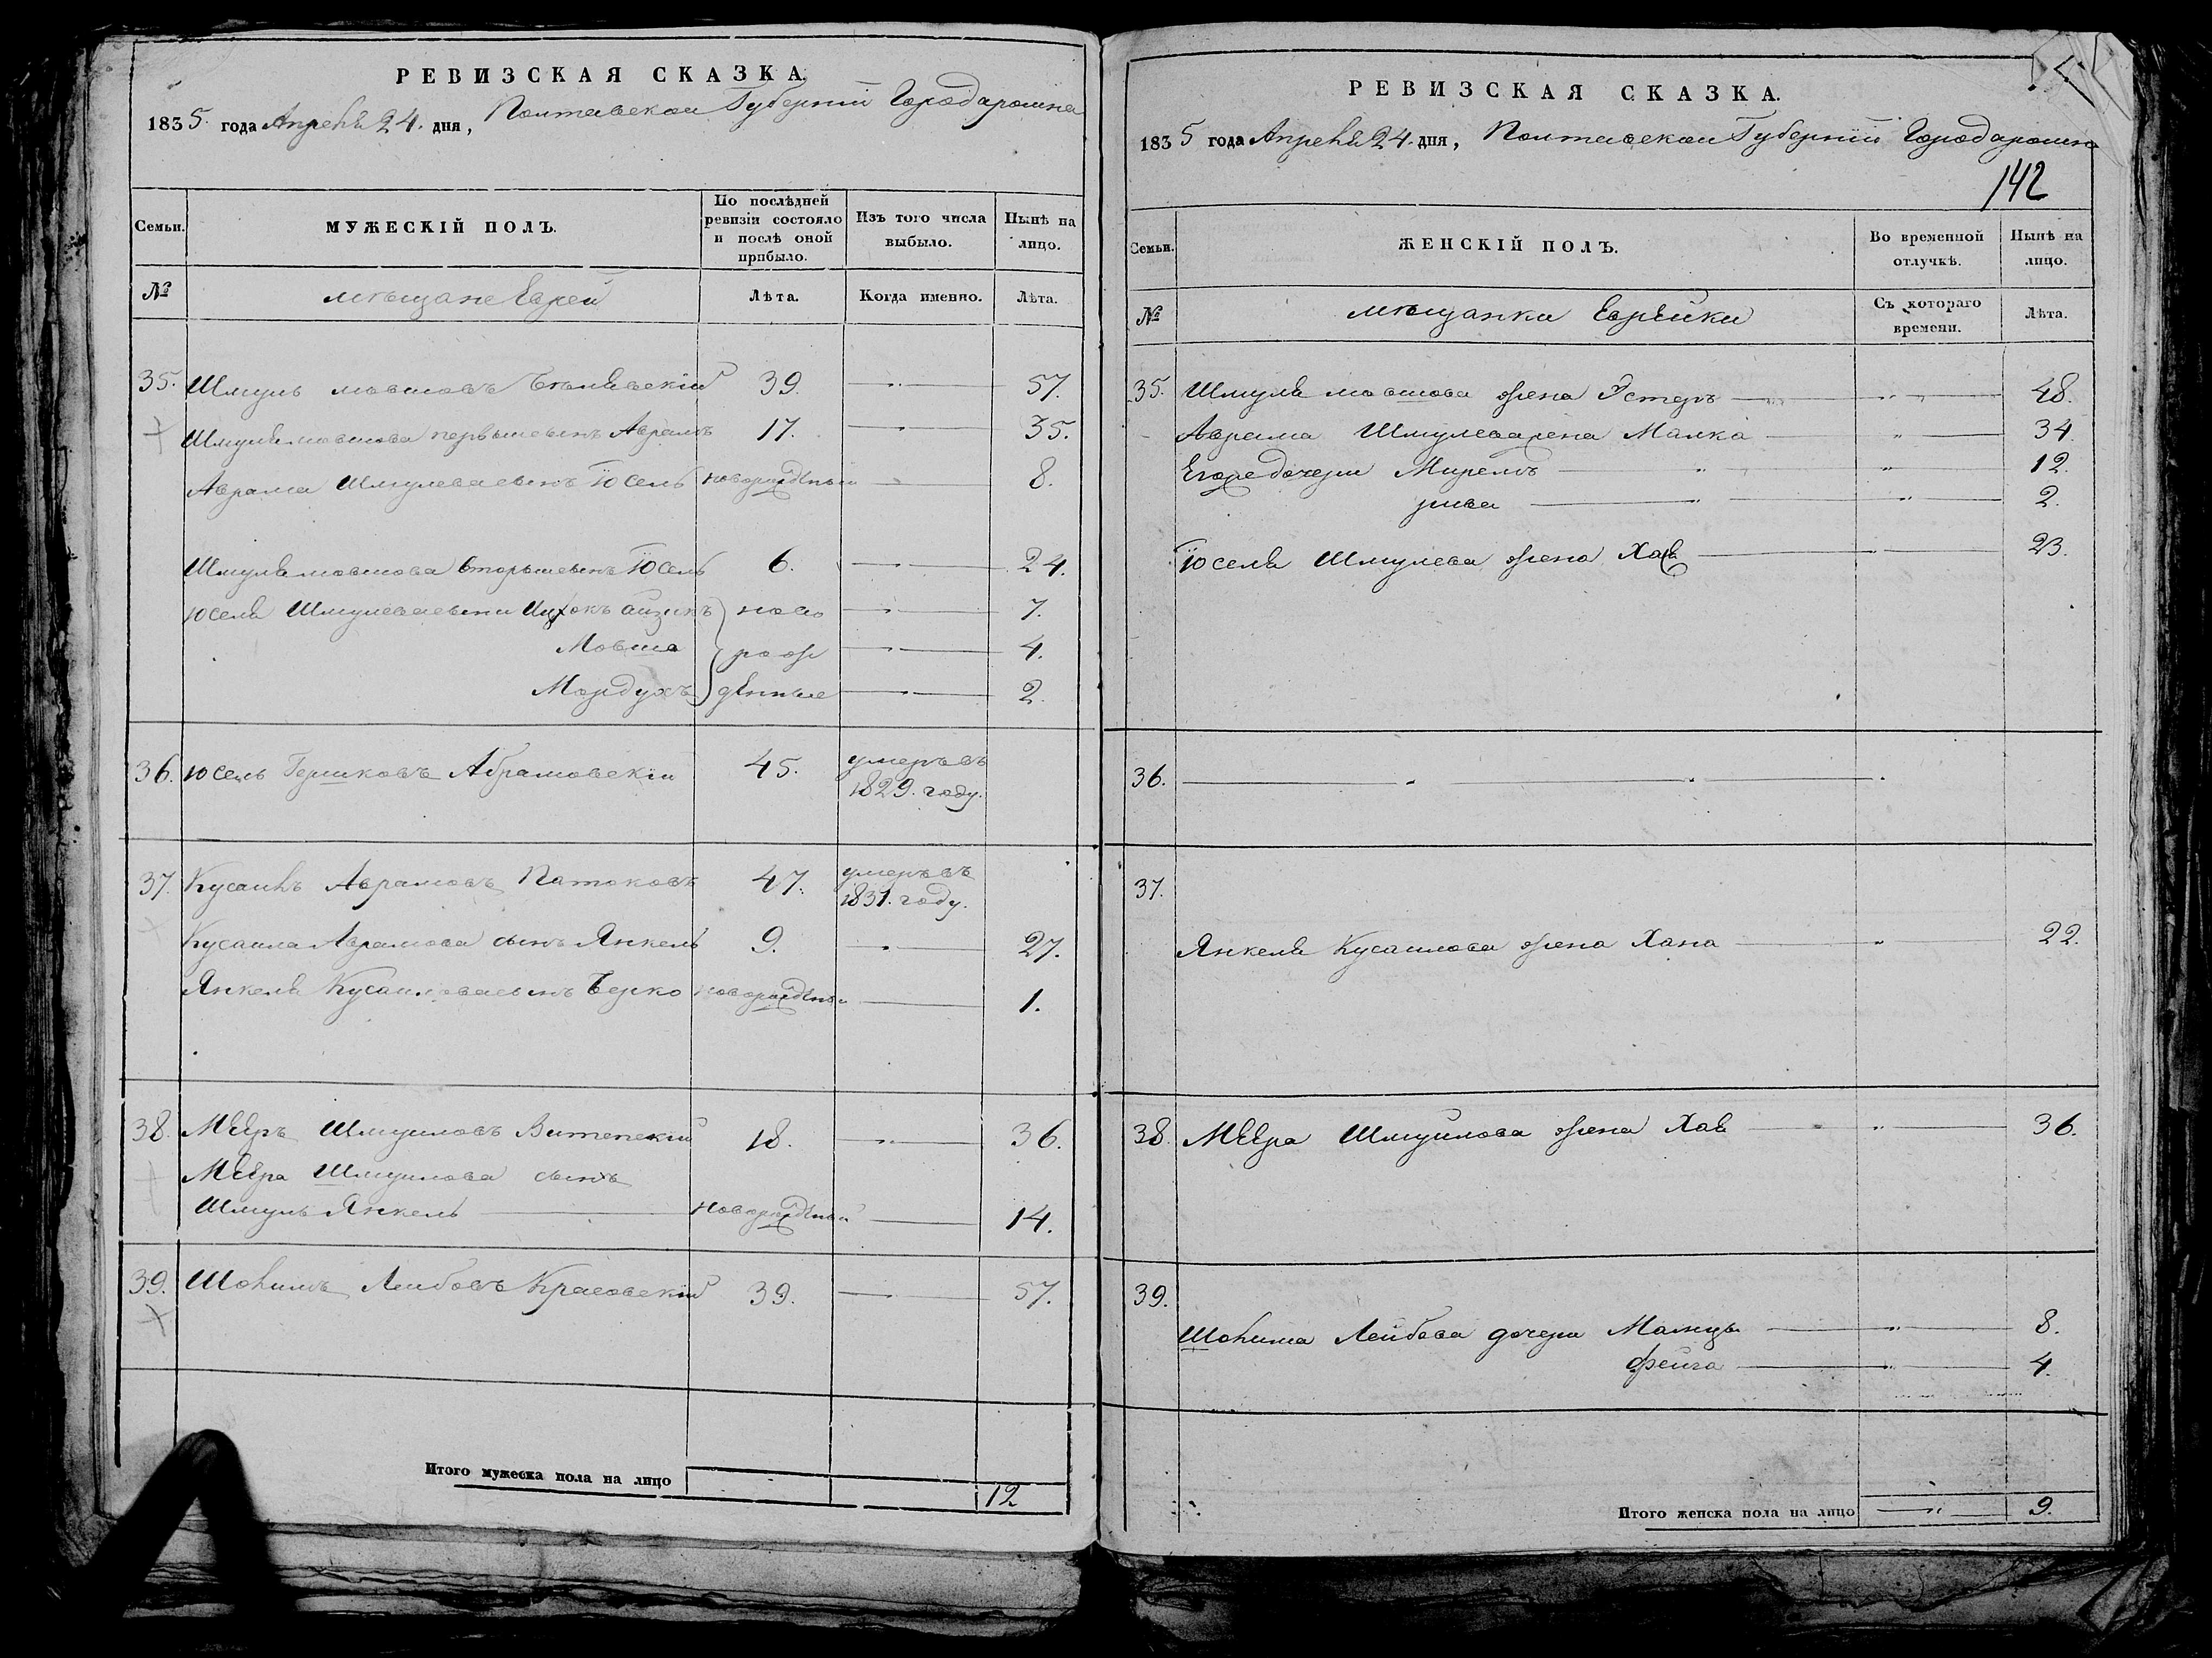 РЕВИЗСКАЯ СКАЗКА.
1835. года Апреля 24. дня, Полтавской Губернии Города
Семьи.
МУЖЕСКІЙ ПОЛЪ.
По послѣдней ревизіи состояло и послѣ оной прибыло.
Изъ того числа выбыло.
Нынѣ на лицо.
№
мѣщане Евреи
Лѣта.
Когда именно.
Лѣта.
35. Шмуль мовшовъ 39. 57.
Шмуля мовшова первый сынъ Аврамъ 17. 35.
Аврама Шмулева сынъ Іосель новорожденый 8.
Шмуля мовшова вторый сынъ Іосель 6. 24.
Іоселя Шмулева сыны Ицхокъ айзикъ ново 7.
Мовша рож 4.
Мордухъ денные 2.
36. Іосель Гершковъ Абрамовскій 45. умеръ въ
1829. году.
37. Кусаилъ Аврамовъ Патоковъ 47. умеръ въ
1831. году.
Кусаила Аврамова сынъ Янкель 9. 27.
Янкеля Кусаилова сынъ Берко новорожденый 1.
38. Мееръ Шмуиловъ Витепскій 18. 36.
Меера Шмуилова сынъ
Шмуль Янкель новорожденый 14.
39. Лейбовъ Красовскій 39. 57.
Итого мужеска пола на лицо 12
РЕВИЗСКАЯ СКАЗКА.
1835 года Апреля 24. дня, Полтавской Губернии Города
142
Семьи.
ЖЕНСКІЙ ПОЛЪ.
Во временной отлучкѣ.
Нынѣ на лицо.
№
мѣщанки Еврейки
Съ котораго времени.
Лѣта.
35. Шмуля мовшова жена Эстеръ 48.
Аврама Шмулева жена Малка 34.
Егоже дочери Мирель 12.
рива 2.
Іоселя Шмулева жена Хая 23.
36.
37.
Янкеля Кусаилова жена Хана 22.
38. Меера Шмуилова жена Хая 36.
39.
Лейбова дочери 8.
Фейга 4.
Итого женска пола на лицо 9.